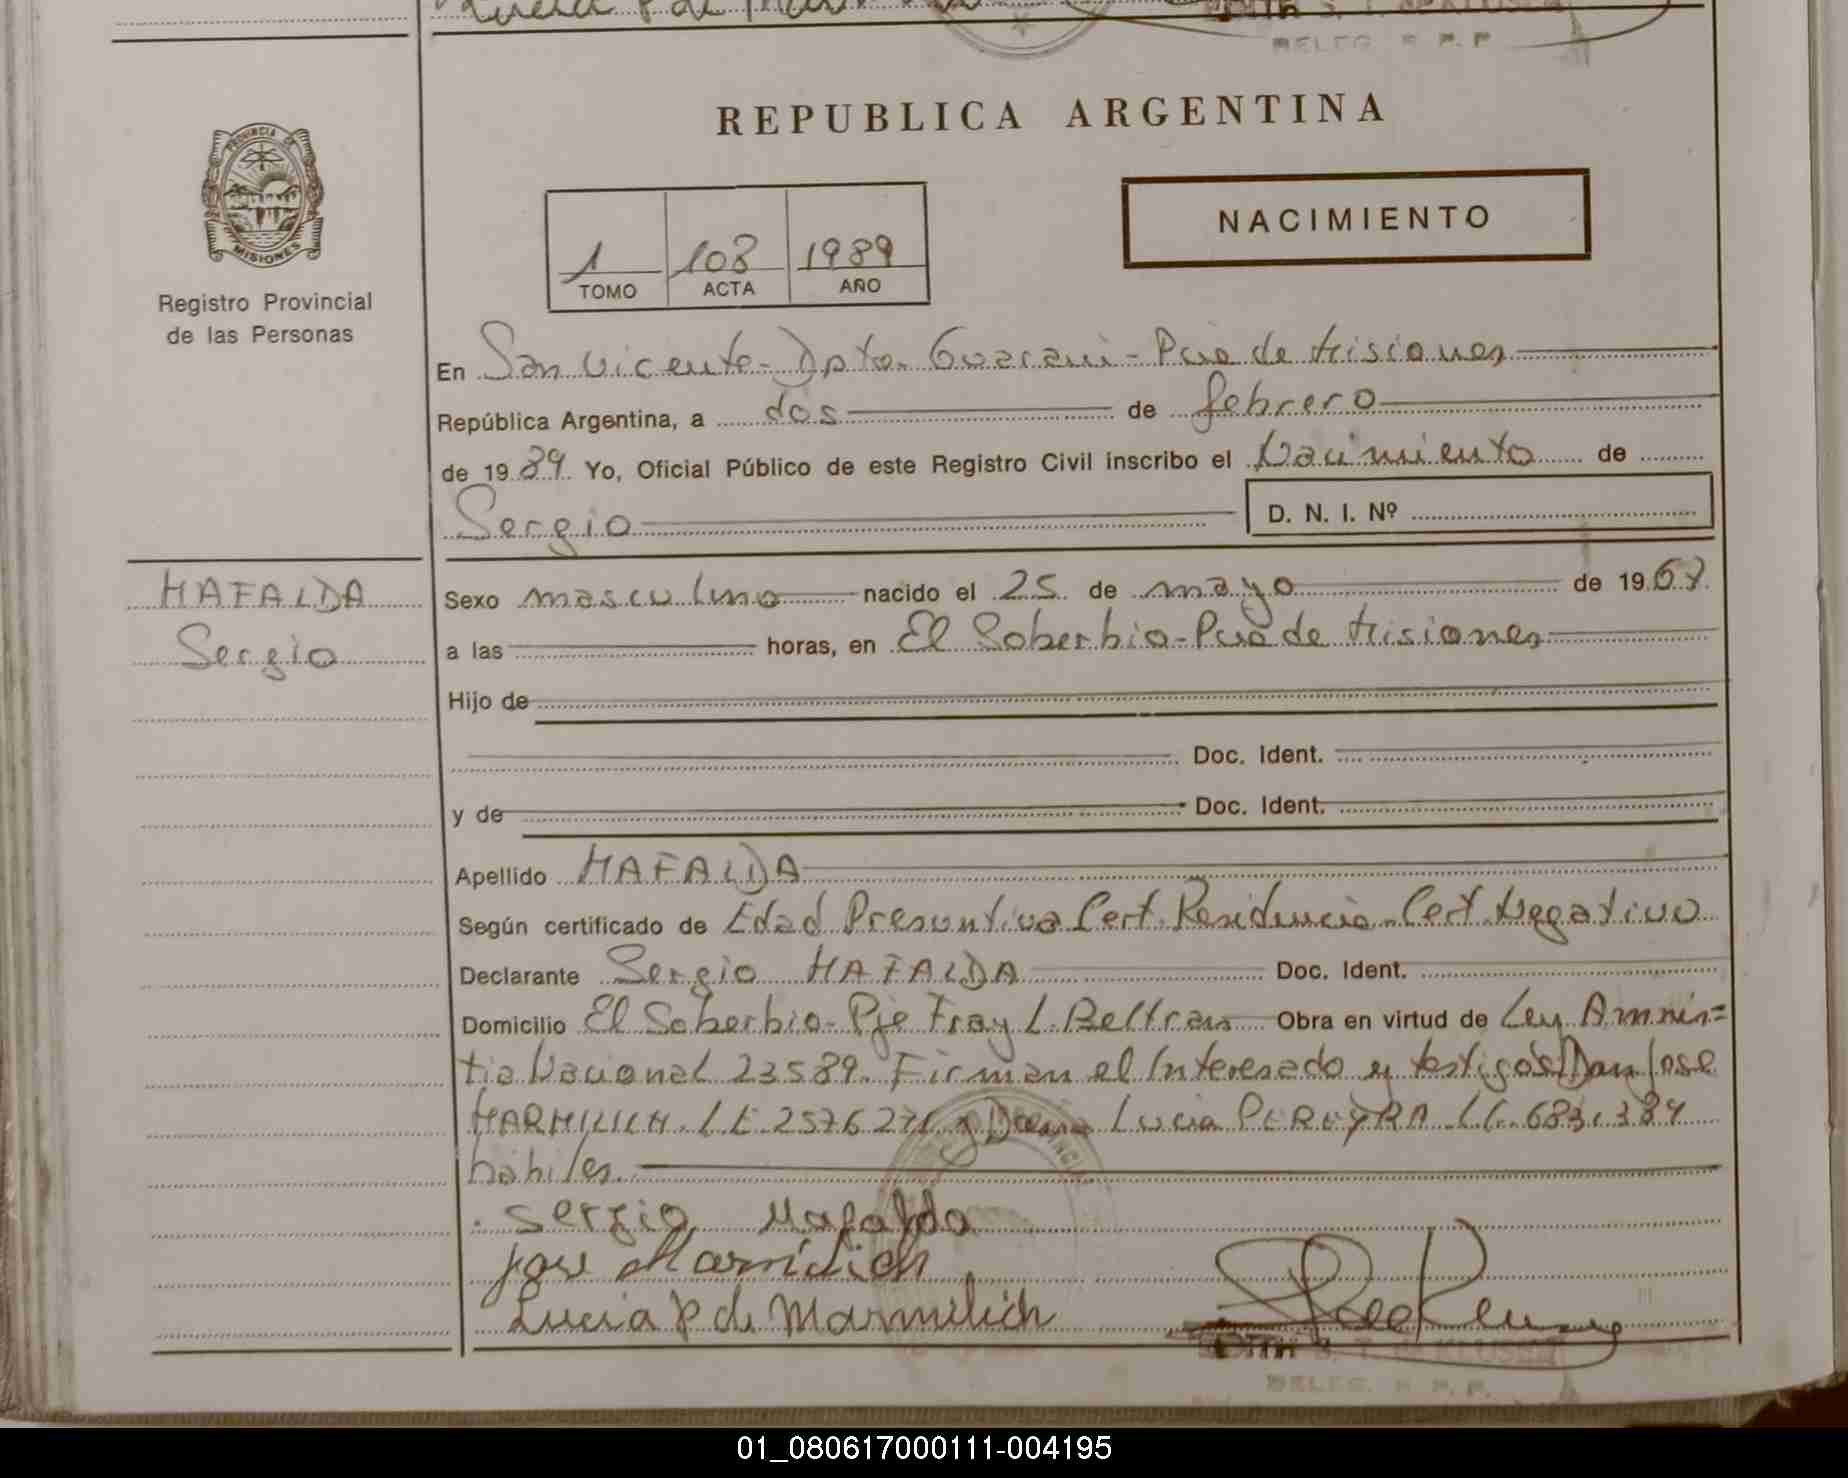 PROVINCIA DE
MISIONES
Registro Provincial
de las Personas
REPUBLICA ARGENTINA
NACIMIENTO
1 108 1989
TOMO ACTA AÑO
En San Vicente - Dpto. Guarani - Pcia de Misiones
República Argentina, a dos de febrero
de 1989 Yo, Oficial Público de este Registro Civil inscribo el Nacimiento de
Sergio D. N. I. Nº
HAFALDA
Sergio
Sexo masculino nacido el 25 de mayo de 1967
a las horas, en El Soberbio - Pcia de Misiones
Hijo de
Doc. Ident.
y de Doc. Ident.
Apellido MAFALDA
Según certificado de Edad Presuntiva Cert. Residencia - Cert Negativo
Declarante Sergio MAFALDA Doc. Ident.
Domicilio El Soberbio - Pje Fray L. Beltran Obra en virtud de Ley Amnis=
tia Nacional 23589. Firman el Interesado y testigos Don Jose
MARMILICH. LE 2576271 y Doña Lucia PEREYRA LC. 6831384
habiles.
Sergio Mafalda
Jose Marmilich
Lucia P de Marmilich
DELEG. R. P. P.
01_080617000111-004195